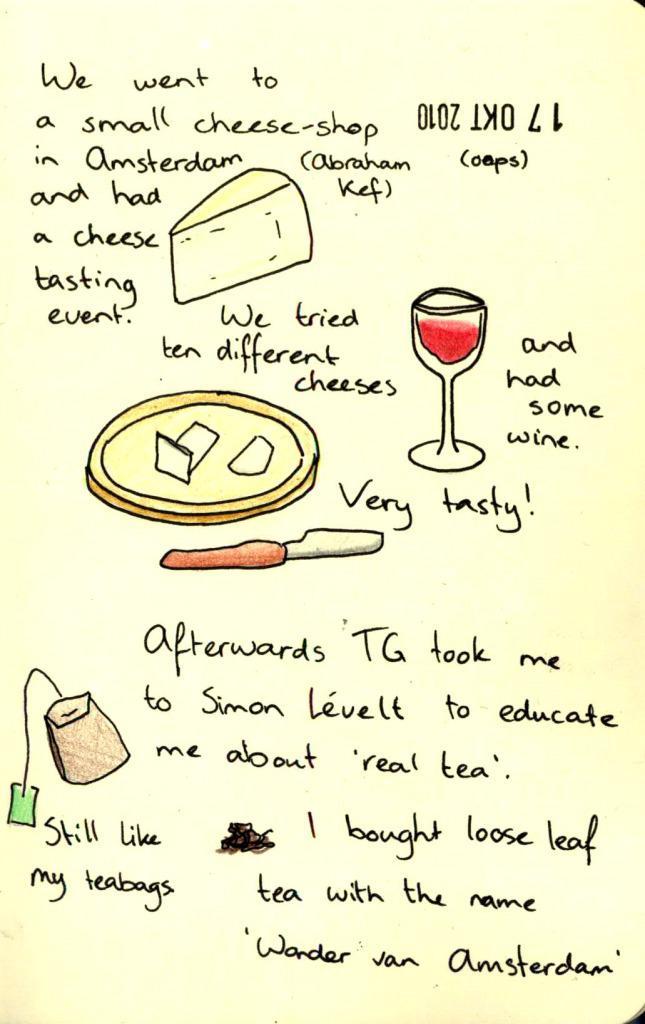 We went to
a small cheese-shop
17 OKT 2010
in Amsterdam (Abraham Kef)
(oops)
and had
a cheese
tasting
event.
We tried
ten different
cheeses
and
had
some
wine.
Very tasty!
Afterwards TG took me
to Simon Lévelt to educate
me about 'real tea'.
Still like
my teabags
I bought loose leaf
tea with the name
'Wonder van Amsterdam'